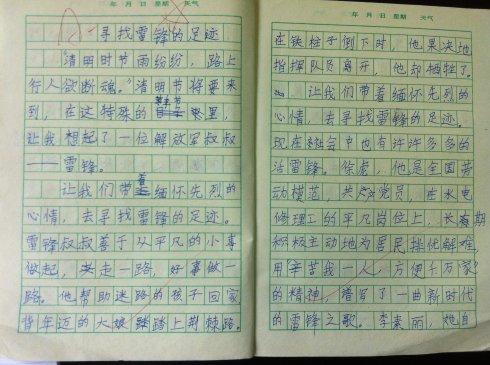 年 月 日 星期 天气
寻找雷锋的足迹
"清明时节雨纷纷,路上
行人欲断魂。"清明节将要来
到,在这特殊的季节里,
让我想起了一位解放军叔叔
——雷锋。
让我们带着缅怀先烈的
心情,去寻找雷锋的足迹。
雷锋叔叔善于从平凡的小事
做起,走一路,好事做一
路。他帮助迷路的孩子回家
背年迈的大娘踏上荆棘路。
年 月 日 星期 天气
在铁柱子倒下时,他果决地
指挥队员离开,他却牺牲了。
让我们带着缅怀先烈的
心情,去寻找雷锋的足迹。
现在社会中也有许许多多的
活雷锋。徐虎,他是全国劳
动模范,共产党员,在水电
修理工的平凡岗位上,长期
积极主动地为居民排忧解难,
用"辛苦我一人,方便千万家"
的精神,谱写了一曲新时代
的雷锋之歌。李素丽,她自